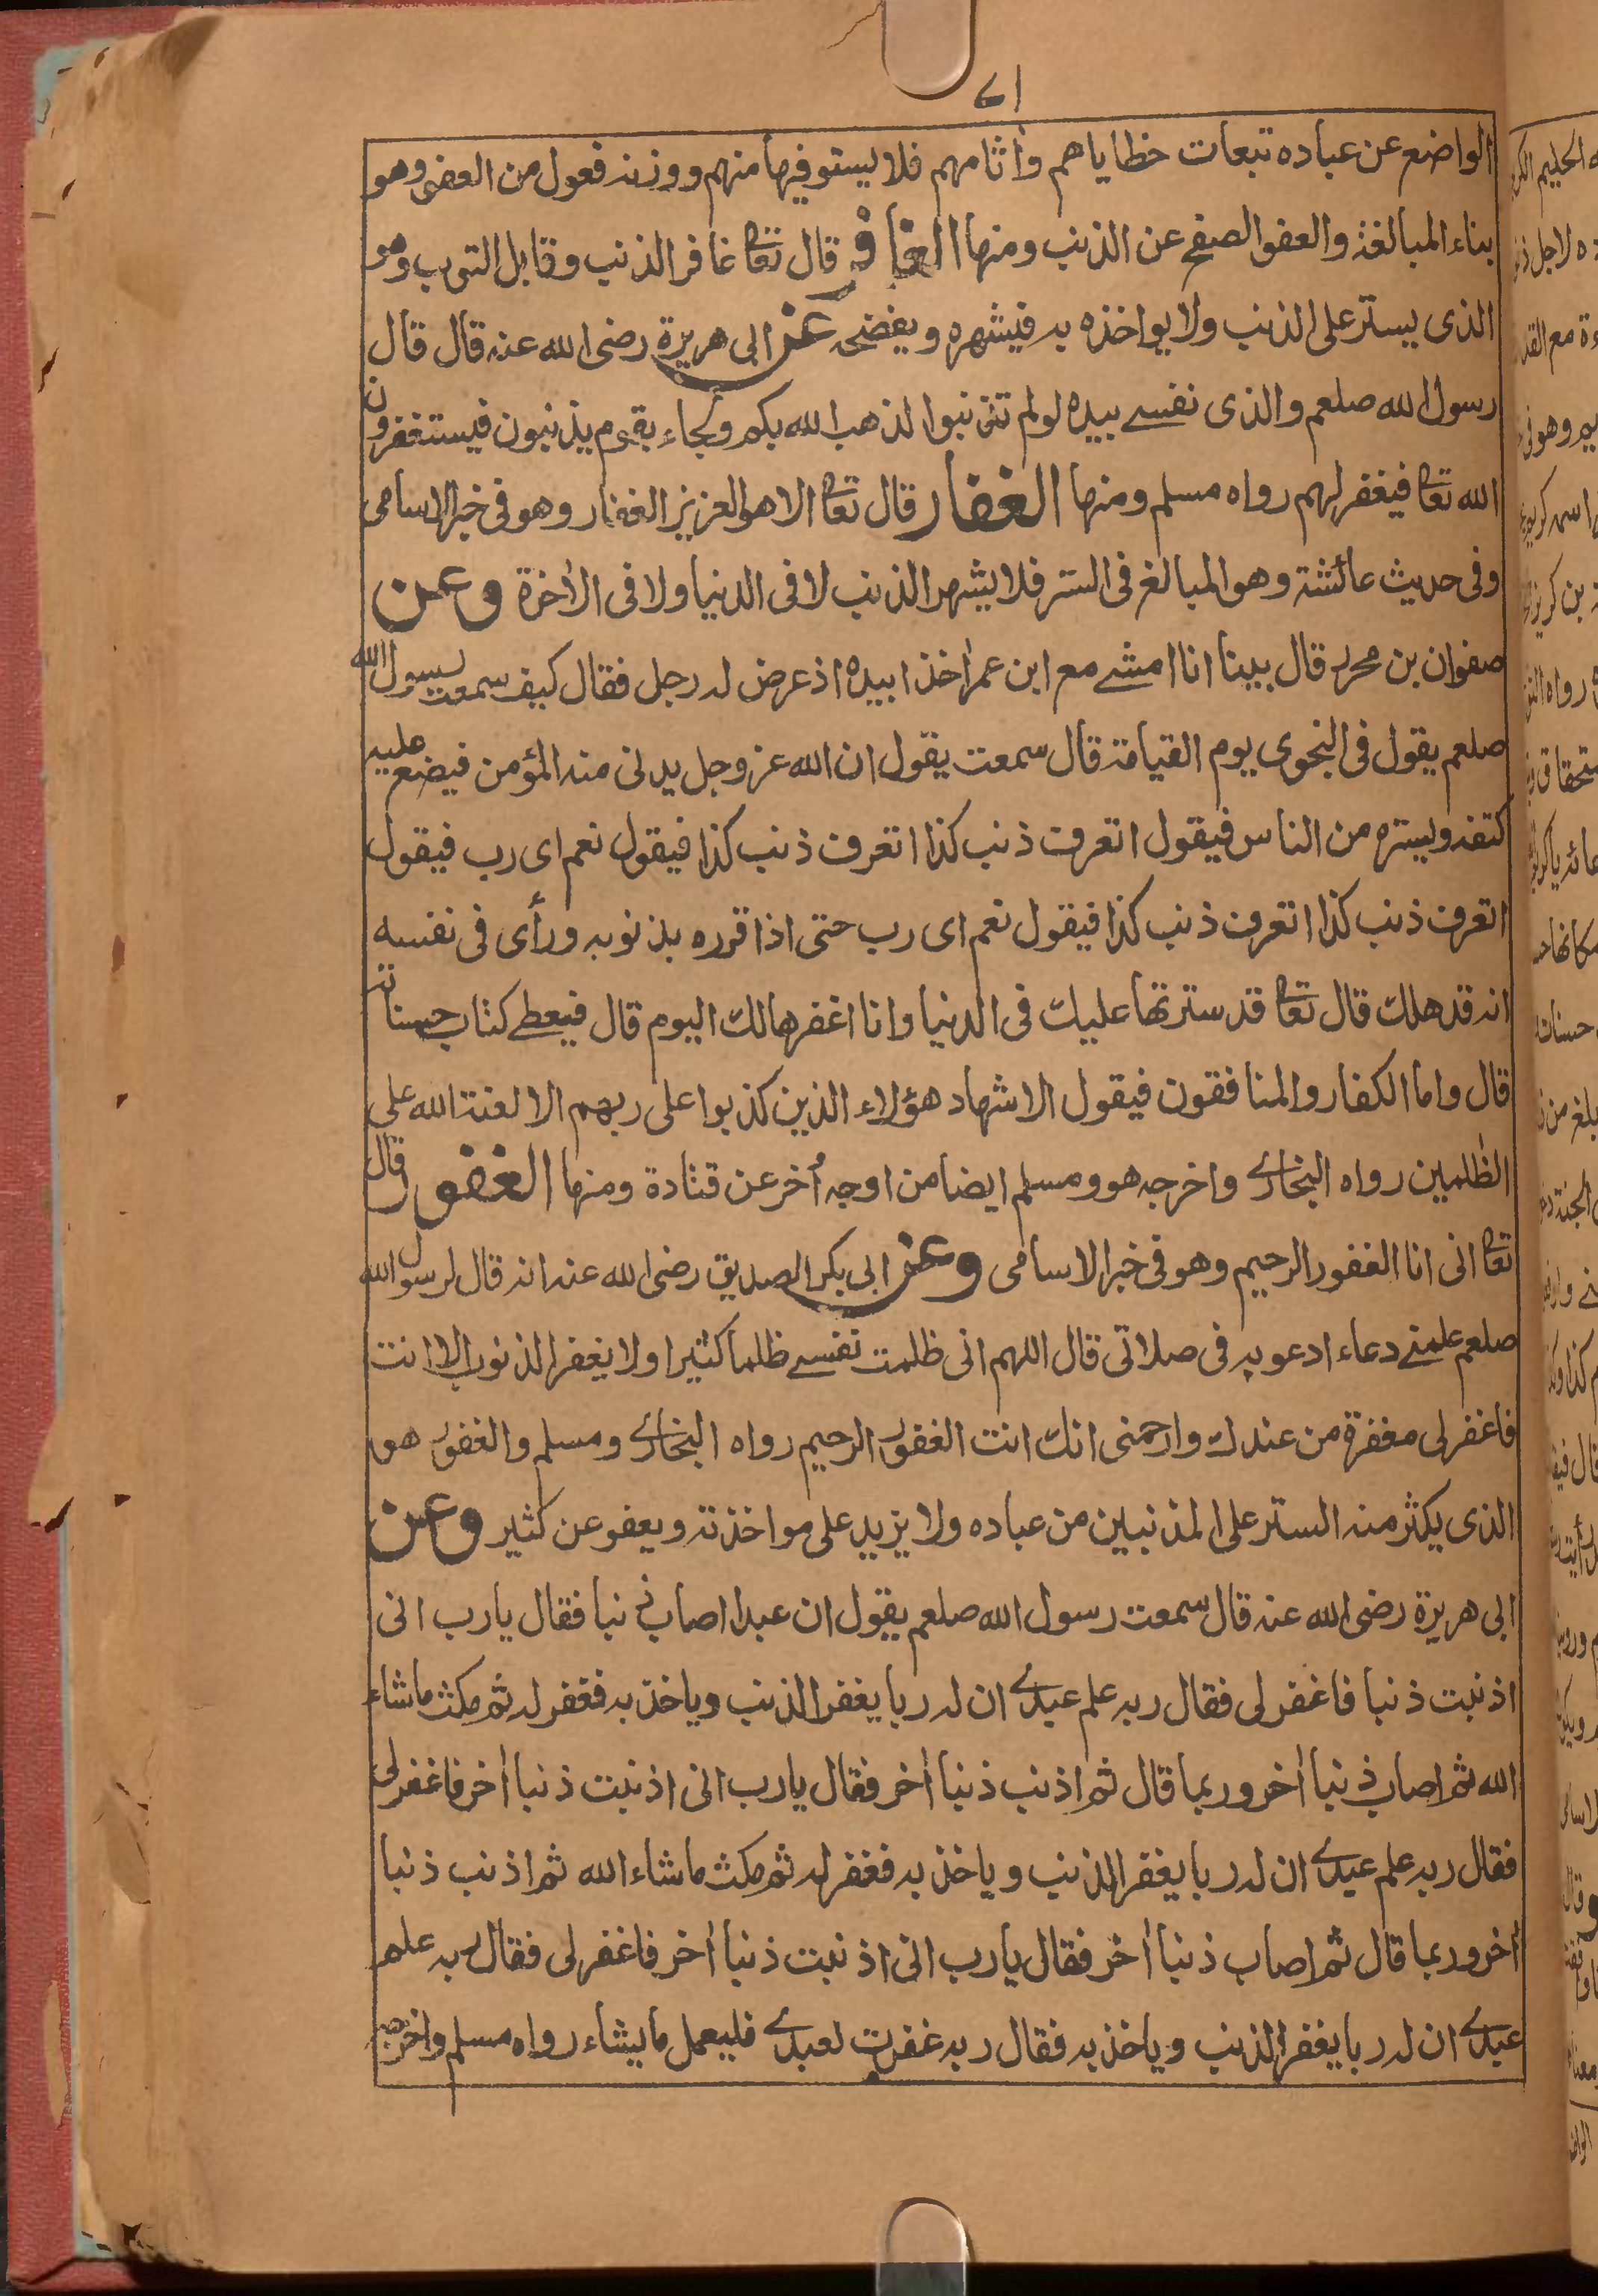 ٧١
الواضع عن عباده تبعات خطاياهم وأثامهم فلا يستوفيها منهم ووزنه فعول من العفو وهو
بناء المبالغة والعفو الصفح عن الذنب ومنها الغافر قال تعا غافر الذنب وقابل التوب وهو
الذى يستر على الذنب ولا يواخذه به فيشهره ويفضحه عن ابى هريرة رضى الله عنه قال قال
رسول الله صلعم والذى نفسے بيده لولم تذنبوا لذهب الله بكم ولجاء بقوم يذنبون فيستغفرون
الله تعا فيغفر لهم رواه مسلم ومنها الغفار قال تعا الا هو العزيز الغفار وهو فى خبر الاسامى
وفى حديث عائشة وهو المبالغ فى الستر فلا يشهر الذنب لا فى الدنيا ولا فى الأخرة وعن
صفوان بن محرز قال بينا انا امشے مع ابن عمر أخذا بيده اذ عرض له رجل فقال كيف سمعت رسول الله
صلعم يقول فى النجوى يوم القيامة قال سمعت يقول ان الله عز وجل يدنى منه المؤمن فيضع عليه
كتفه ويستره من الناس فيقول اتعرف ذنب كذا اتعرف ذنب كذا فيقول نعم اى رب فيقول
اتعرف ذنب كذا اتعرف ذنب كذا فيقول نعم اى رب حتى اذا قرره بذنوبه ورأى فى نفسه
انه قد هلك قال تعا قد سترتها عليك فى الدنيا وانا اغفرها لك اليوم قال فيعطے كتاب حسناته
قال واما الكفار والمنافقون فيقول الاشهاد هؤلاء الذين كذبوا على ربهم الا لعنة الله على
الظلمين رواه البخارے واخرجه هو ومسلم ايضا من اوجه أخر عن قتادة ومنها الغفور قال
تعا انى انا الغفور الرحيم وهو فى خبر الاسامى وعن ابى بكر الصديق رضى الله عنه انه قال لرسول الله
صلعم علمنے دعاء ادعو به فى صلاتى قال اللهم انى ظلمت نفسے ظلما كثيرا ولا يغفر الذنوب الا انت
فاغفر لى مغفرة من عندك وارحمنى انك انت الغفور الرحيم رواه البخارے ومسلم والغفور هو
الذى يكثر منه الستر على المذنبين من عباده ولا يزيد على مواخذته ويعفو عن كثير وعن
ابى هريرة رضى الله عنه قال سمعت رسول الله صلعم يقول ان عبدا اصاب ذنبا فقال يارب انى
اذنبت ذنبا فاغفر لى فقال ربه علم عبدے ان له ربا يغفر الذنب وياخذ به فغفر له ثم مكث ماشاء
الله ثم اصاب ذنبا أخر وربما قال ثم اذنب ذنبا أخر فقال يارب انى اذنبت ذنبا أخر فاغفر لى
فقال ربه علم عبدے ان له ربا يغفر الذنب وياخذ به فغفر له ثم مكث ماشاء الله ثم اذنب ذنبا
أخر وربما قال ثم اصاب ذنبا أخر فقال يارب انى اذنبت ذنبا أخر فاغفر لى فقال ربه علم
عبدے ان له ربا يغفر الذنب وياخذ به فقال ربه غفرت لعبدے فليعمل مايشاء رواه مسلم واخرجه